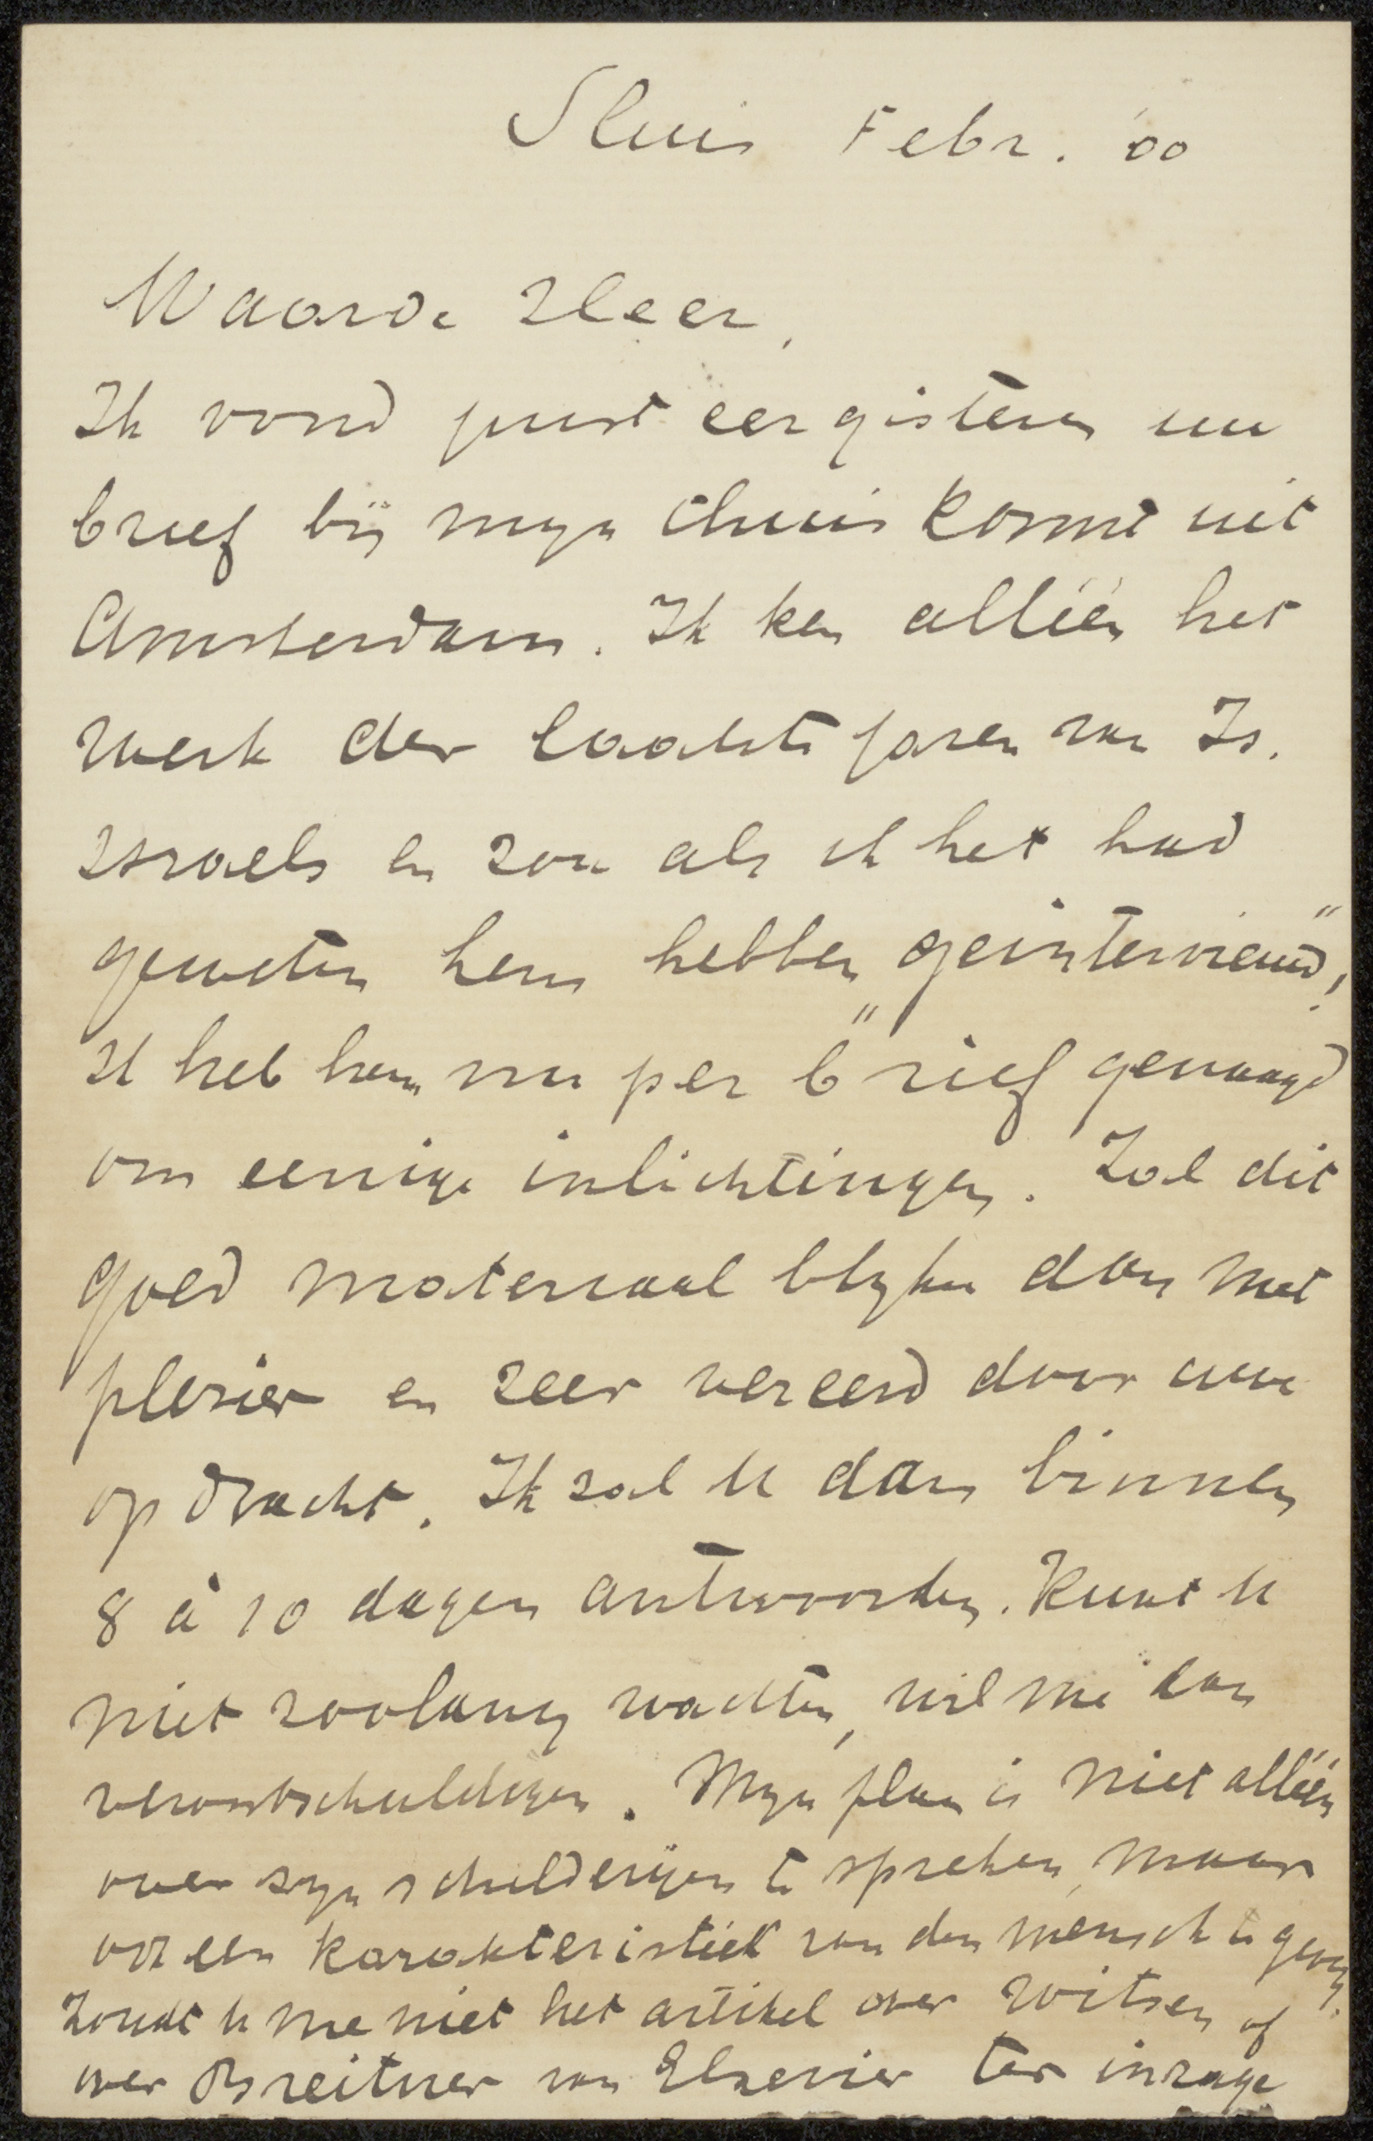 Sluis Febr. '00
Waarde Heer,
Ik vond juist eergisteren uw
brief bij mijn thuis komst uit
Amsterdam. Ik ken alléén het
werk der laatste jaren van Is.
Israels en zou als ik het had
geweten hem hebben „geinterviewd”!
Ik heb hem nu per brief gevraagd
om eenige inlichtingen. Zal dit
goed materiaal blijken dan met
plezier en zeer vereerd door uwe
opdracht. Ik zal U dan binnen
8 à 10 dagen antwoorden. Kunt U
niet zoolang wachten, wil me dan
verontschuldigen. Mijn plan is niet alléén
over zijn schilderijen te spreken, maar
ook een karakteristiek van den mensch te geven.
Zoudt U me niet het artikel over Witsen of
over Breitner van Elsevier ter inzage